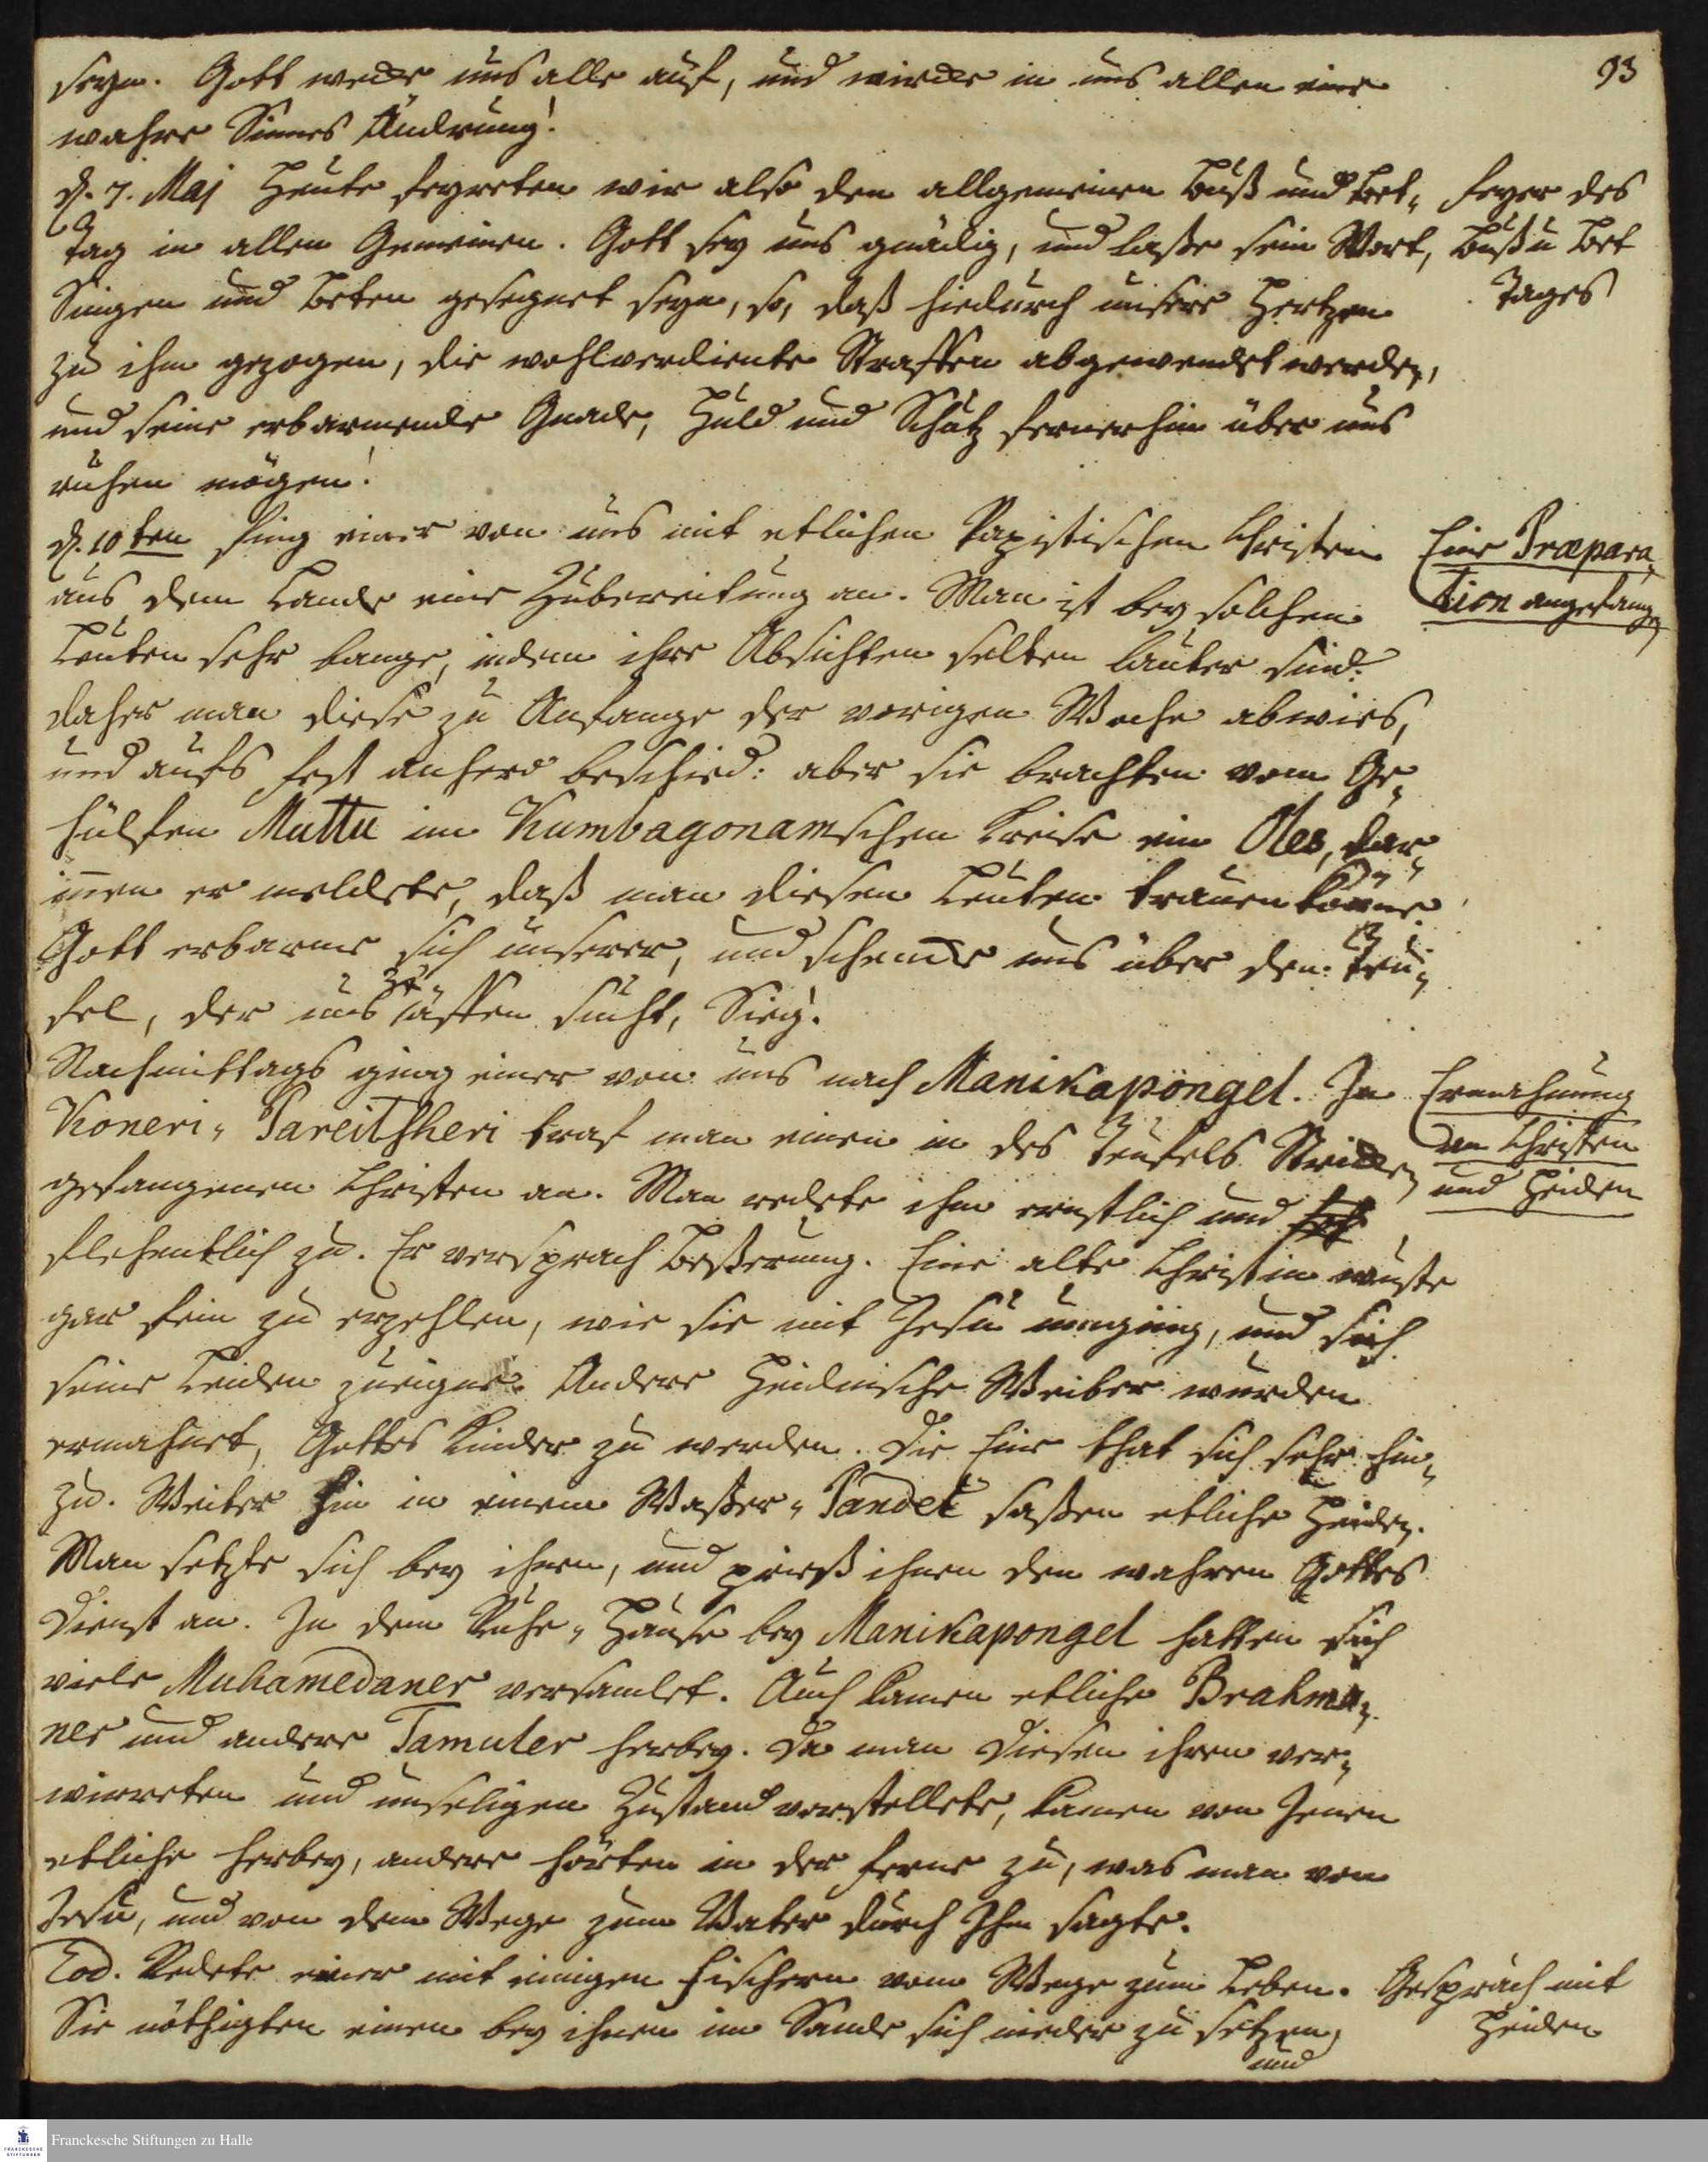 93
seyn. Gott wecke uns alle auf, und wircke in uns allen eine
wahre Sinnes Ändrung!
d. 7. Maj Heute feyreten wir also den allgemeinen Buß und Bet-
Tag in allen Gemeinen. Gott sey uns gnädig, und laße sein Wort,
Singen und Beten gesegnet seyn, so, daß hiedurch unsere Hertzen
zu ihm gezogen, die wohlverdiente Straffen abgewendet werden,
und seine erbarmende Gnade, Huld und Schutz fernerhin über uns
ruhen mögen!
Feyer des
Buß u Bet
Tages
d. 10ten fing einer von uns mit etlichen Papistischen Christen
aus dem Lande eine Zubereitung an. Man ist bey solchen
Leuten sehr bange, indem ihre Absichten selten lauter sind:
daher man diese zu Anfange der vorigen Woche abwies,
und aufs Fest anhero beschied: aber sie brachten vom Ge-
hülfen Muttu im Kumbagonamschen Kreise ein Oles, dar-
innen er meldete, daß man diesen Leuten trauen könne.
Gott erbarme sich unserer, und schencke uns über den Teu-
fel, der uns zu äffen sucht, Sieg!
Eine Præpara-
tion angefangen
Nachmittags ging einer von uns nach Manikapongel. In
Koneri-Pareitsheri traf man einen in des Teufels Stricken
gefangenen Christen an. Man redete ihm ernstlich und
flehentlich zu. Er versprach Beßerung. Eine alte Christin wuste
gar fein zu erzehlen, wie sie mit Jesu umging, und sich
seine Leiden zueigne. Andere Heidnische Weiber wurden
ermahnet, Gottes Kinder zu werden. Die Eine that sich sehr hin-
zu. Weiter hin in einem Waßer-Pandel saßen etliche Heiden.
Man setzte sich bey ihnen, und prieß ihnen den wahren Gottes
Dienst an. In dem Ruhe-Hause bey Manikapongel hatten sich
viele Muhamedaner versamlet. Auch kamen etliche Brahma-
ner und andere Tamuler herbey. Da man Diesen ihren ver-
wirreten und unseligen Zustand vorstellete, kamen von Jenen
etliche herbey, andere hörten in der Ferne zu, was man von
Jesu, und von dem Wege zum Vater durch Ihn sagte.
Ermahnung
an Christen
und Heiden
Eod. Redete einer mit einigen Fischern vom Wege zum Leben.
Sie nöthigten einen bey ihnen im Sande sich nieder zu setzen,
und
Gespräch mit
Heiden
FRANCKESCHE STIFTUNGEN
Franckesche Stiftungen zu Halle